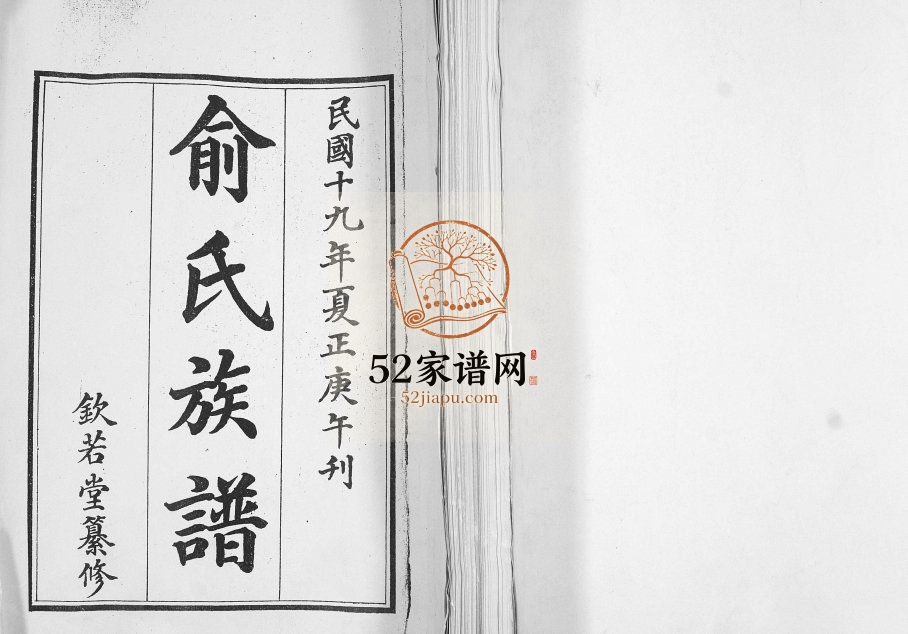 民國十九年夏正庚午刊
俞氏族譜
欽若堂纂修
52家谱网
52jiapu.com